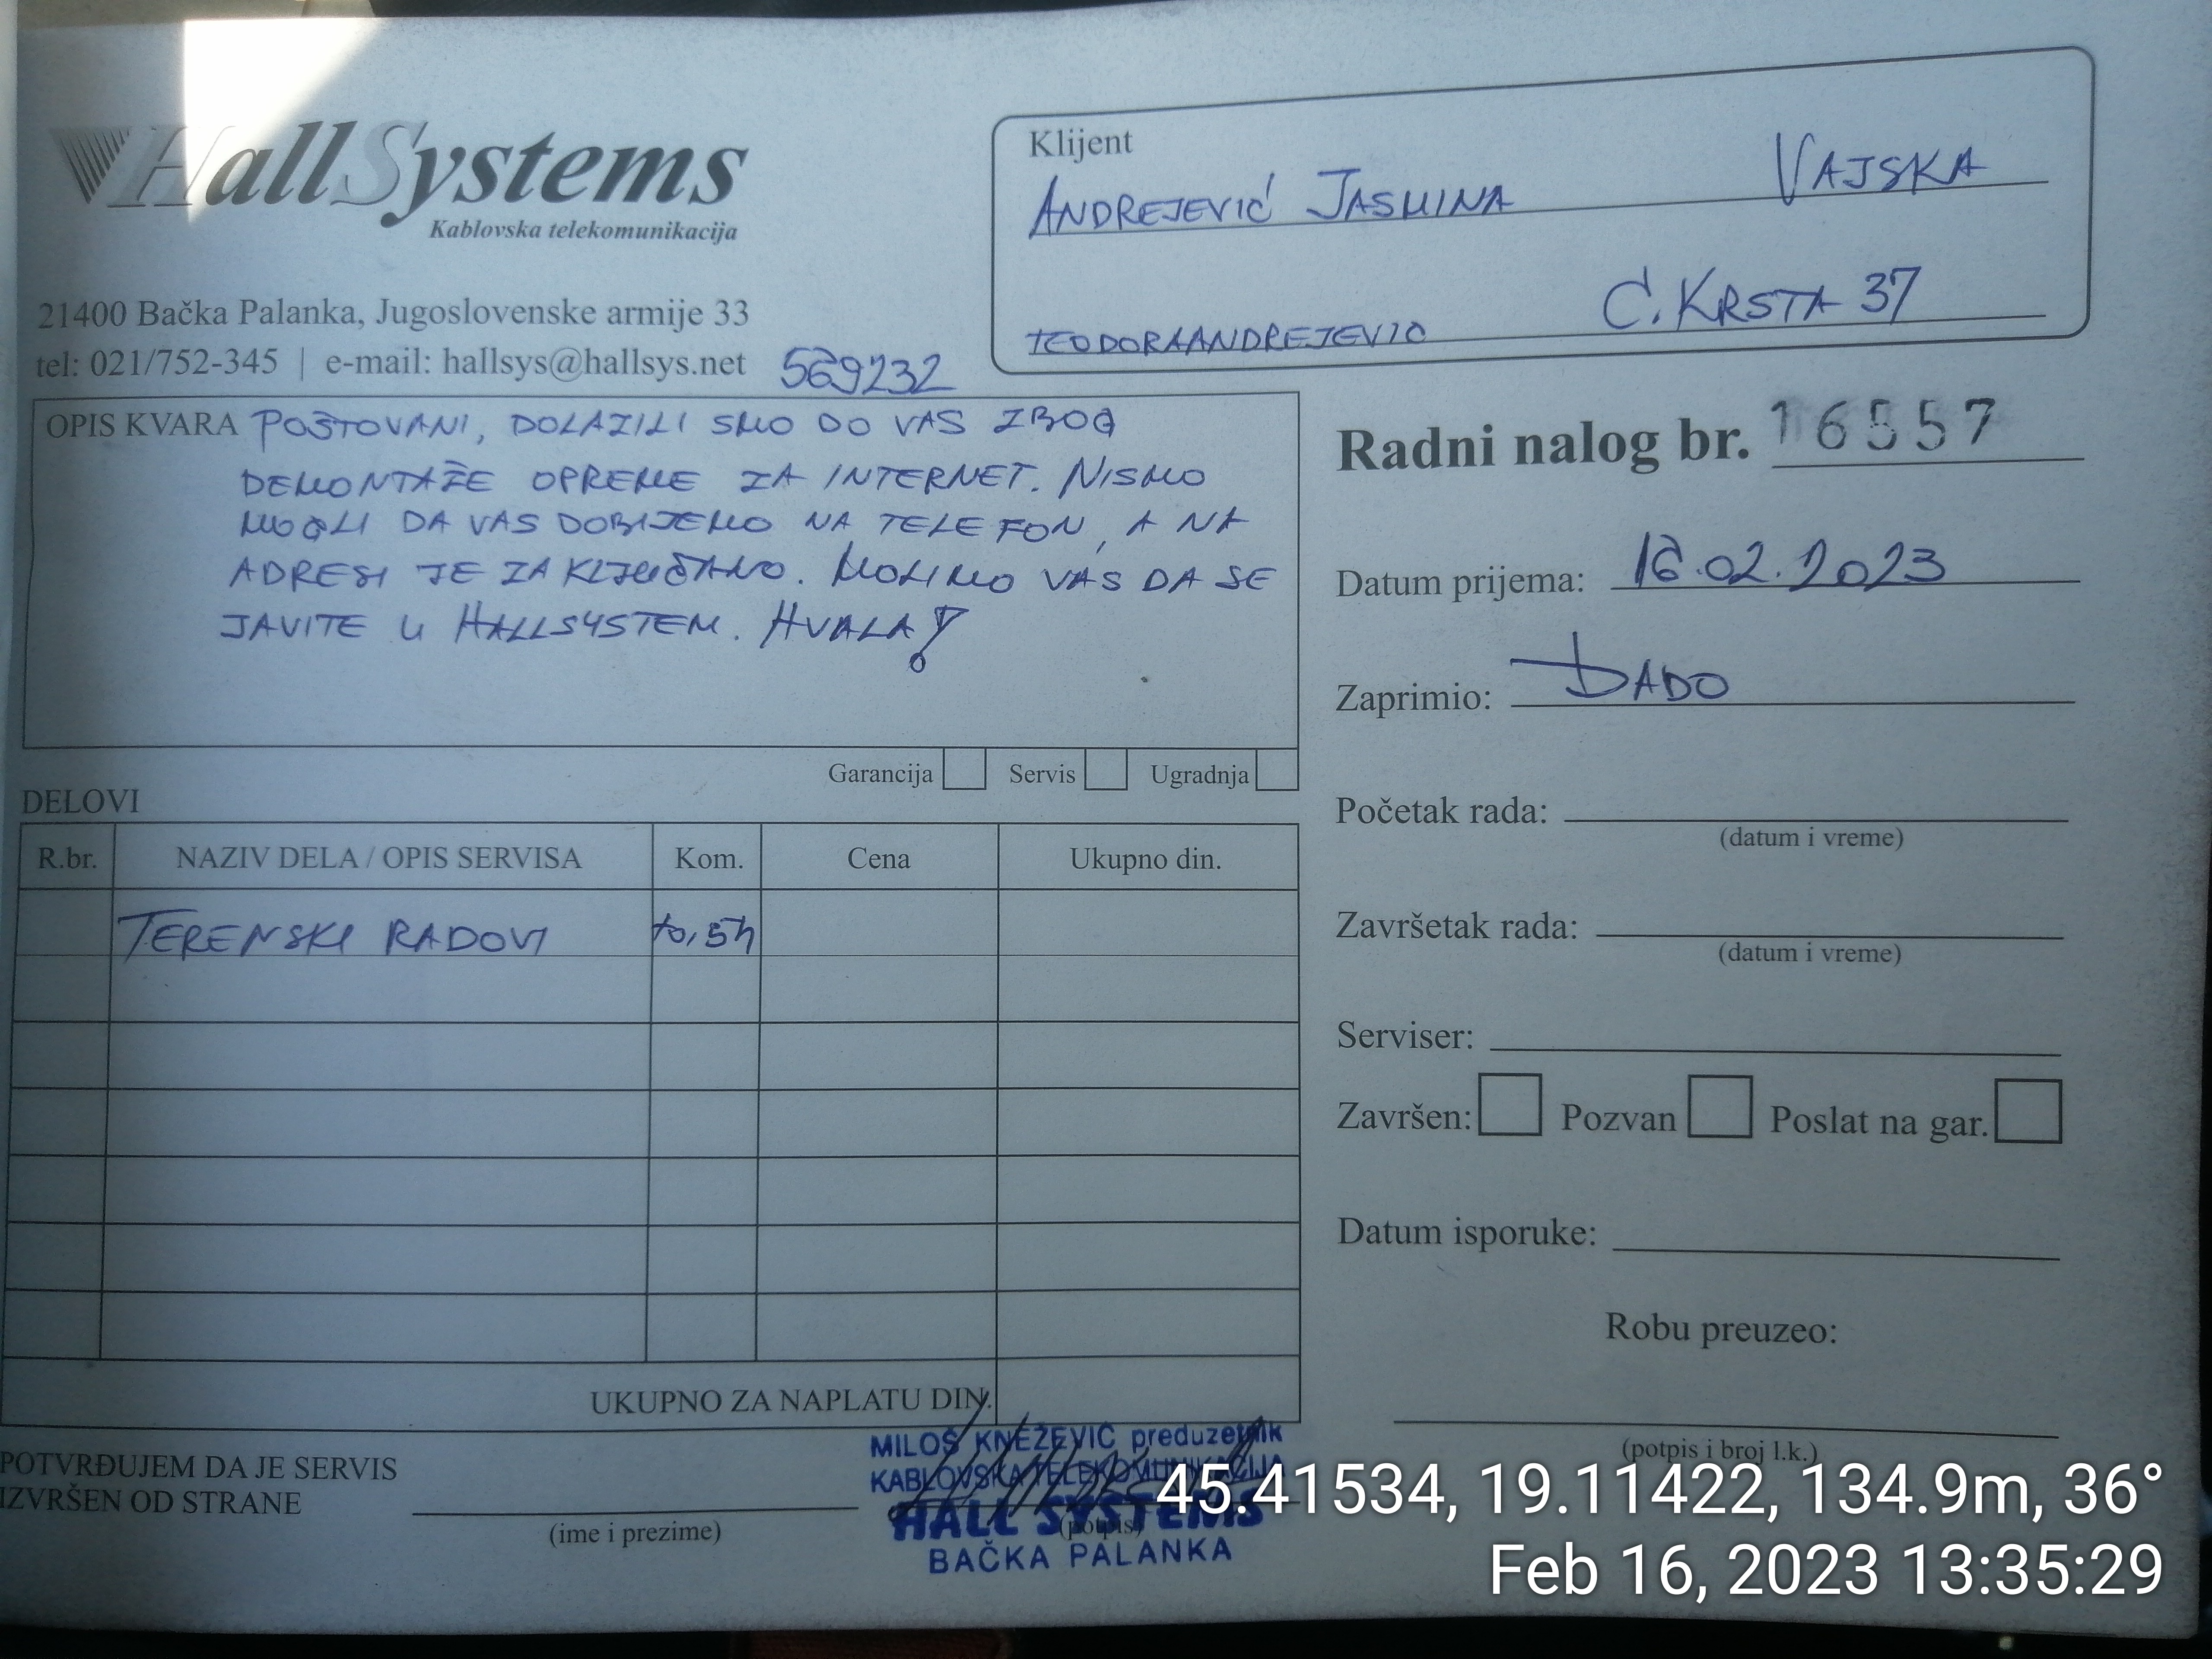 HallSystems
Kablovska telekomunikacija
21400 Bačka Palanka, Jugoslovenske armije 33
tel: 021/752-345 | e-mail: hallsys@hallsys.net
569232
Klijent
ANDREJEVIĆ JASMINA VAJSKA
TEODORAANDREJEVIC Č. KRSTA 37
OPIS KVARA POŠTOVANI, DOLAZILI SMO DO VAS ZBOG
DEMONTAŽE OPREME ZA INTERNET. NISMO
MOGLI DA VAS DOBIJEMO NA TELEFON, A NA
ADRESI JE ZAKLJUČANO. MOLIMO VAS DA SE
JAVITE U HALLSYSTEM. HVALA!
Garancija Servis Ugradnja
Radni nalog br. 16557
Datum prijema: 16.02.2023
Zaprimio: DADO
Početak rada:
(datum i vreme)
Završetak rada:
(datum i vreme)
Serviser:
Završen: Pozvan Poslat na gar.
Datum isporuke:
Robu preuzeo:
(potpis i broj l.k.)
DELOVI
R.br. NAZIV DELA / OPIS SERVISA Kom. Cena Ukupno din.
TERENSKI RADOVI 0,5h
UKUPNO ZA NAPLATU DIN.
POTVRĐUJEM DA JE SERVIS
IZVRŠEN OD STRANE
(ime i prezime)
(potpis)
MILOŠ KNEŽEVIĆ preduzetnik
KABLOVSKA TELEKOMUNIKACIJA
HALL SYSTEMS
BAČKA PALANKA
45.41534, 19.11422, 134.9m, 36°
Feb 16, 2023 13:35:29